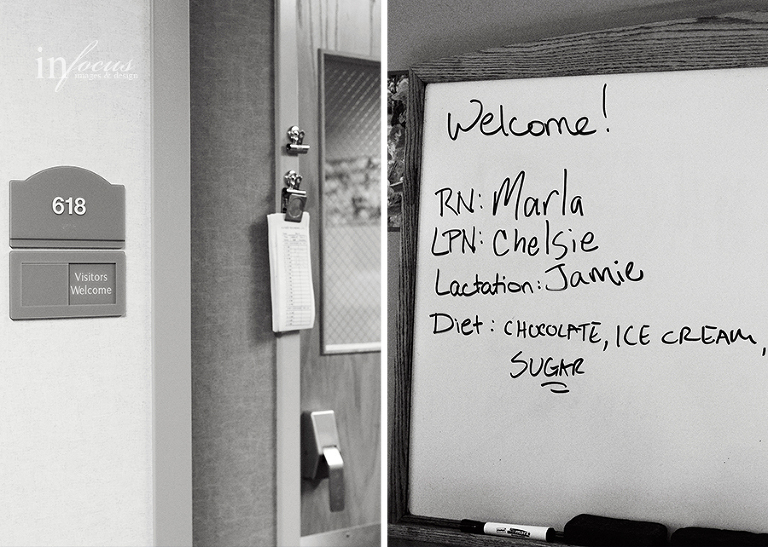 infocus
images & design
618
Visitors
Welcome
Welcome!
RN: Marla
LPN: Chelsie
Lactation: Jamie
Diet: CHOCOLATE, ICE CREAM,
SUGAR